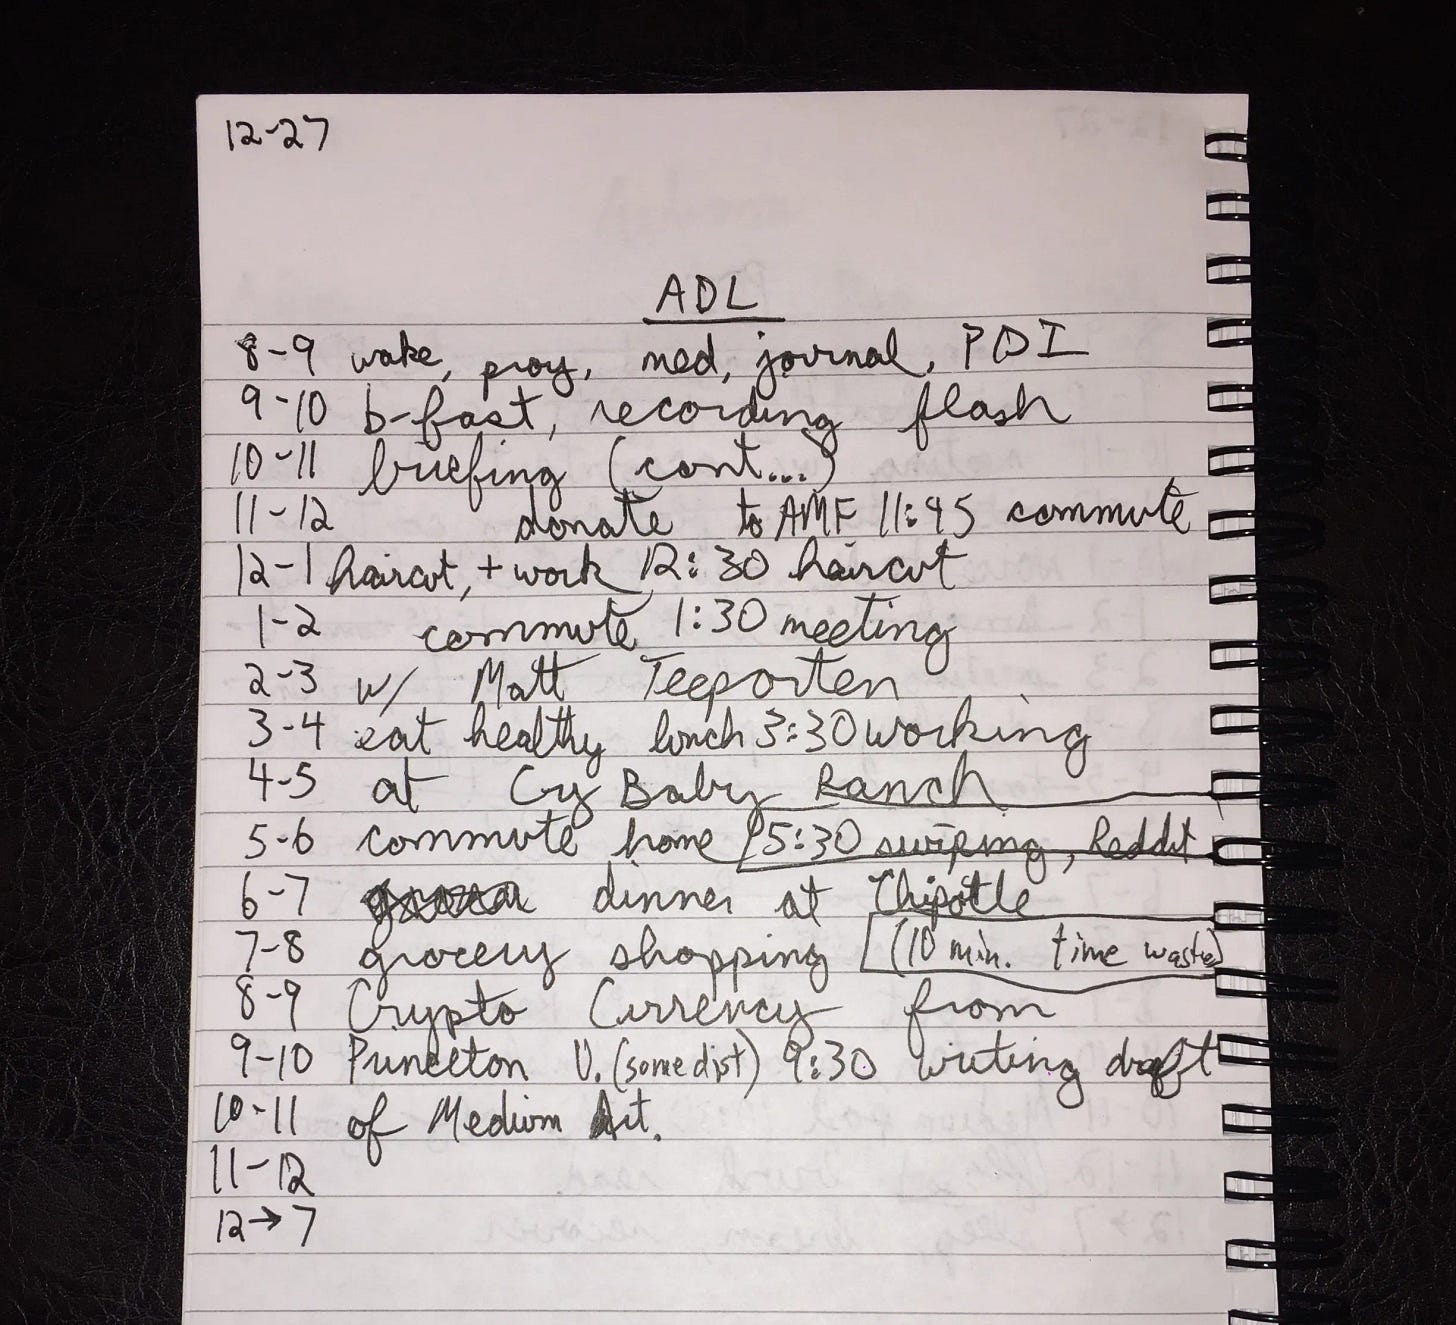 12-27
ADL
8-9 wake, pray, med, journal, PDI
9-10 b-fast, recording flash
10-11 briefing (cont...)
11-12 donate to AMF 11:45 commute
12-1 haircut, + work 12:30 haircut
1-2 commute 1:30 meeting
2-3 w/ Matt Teeporten
3-4 eat healthy lunch 3:30 working
4-5 at Cry Baby Ranch
5-6 commute home 5:30 swiping, Reddit
6-7 dinner at Chipotle
7-8 grocery shopping (10 min. time wasted)
8-9 Crypto Currency from
9-10 Princeton U. (some dist) 9:30 writing draft
10-11 of Medium Art.
11-12
12→7